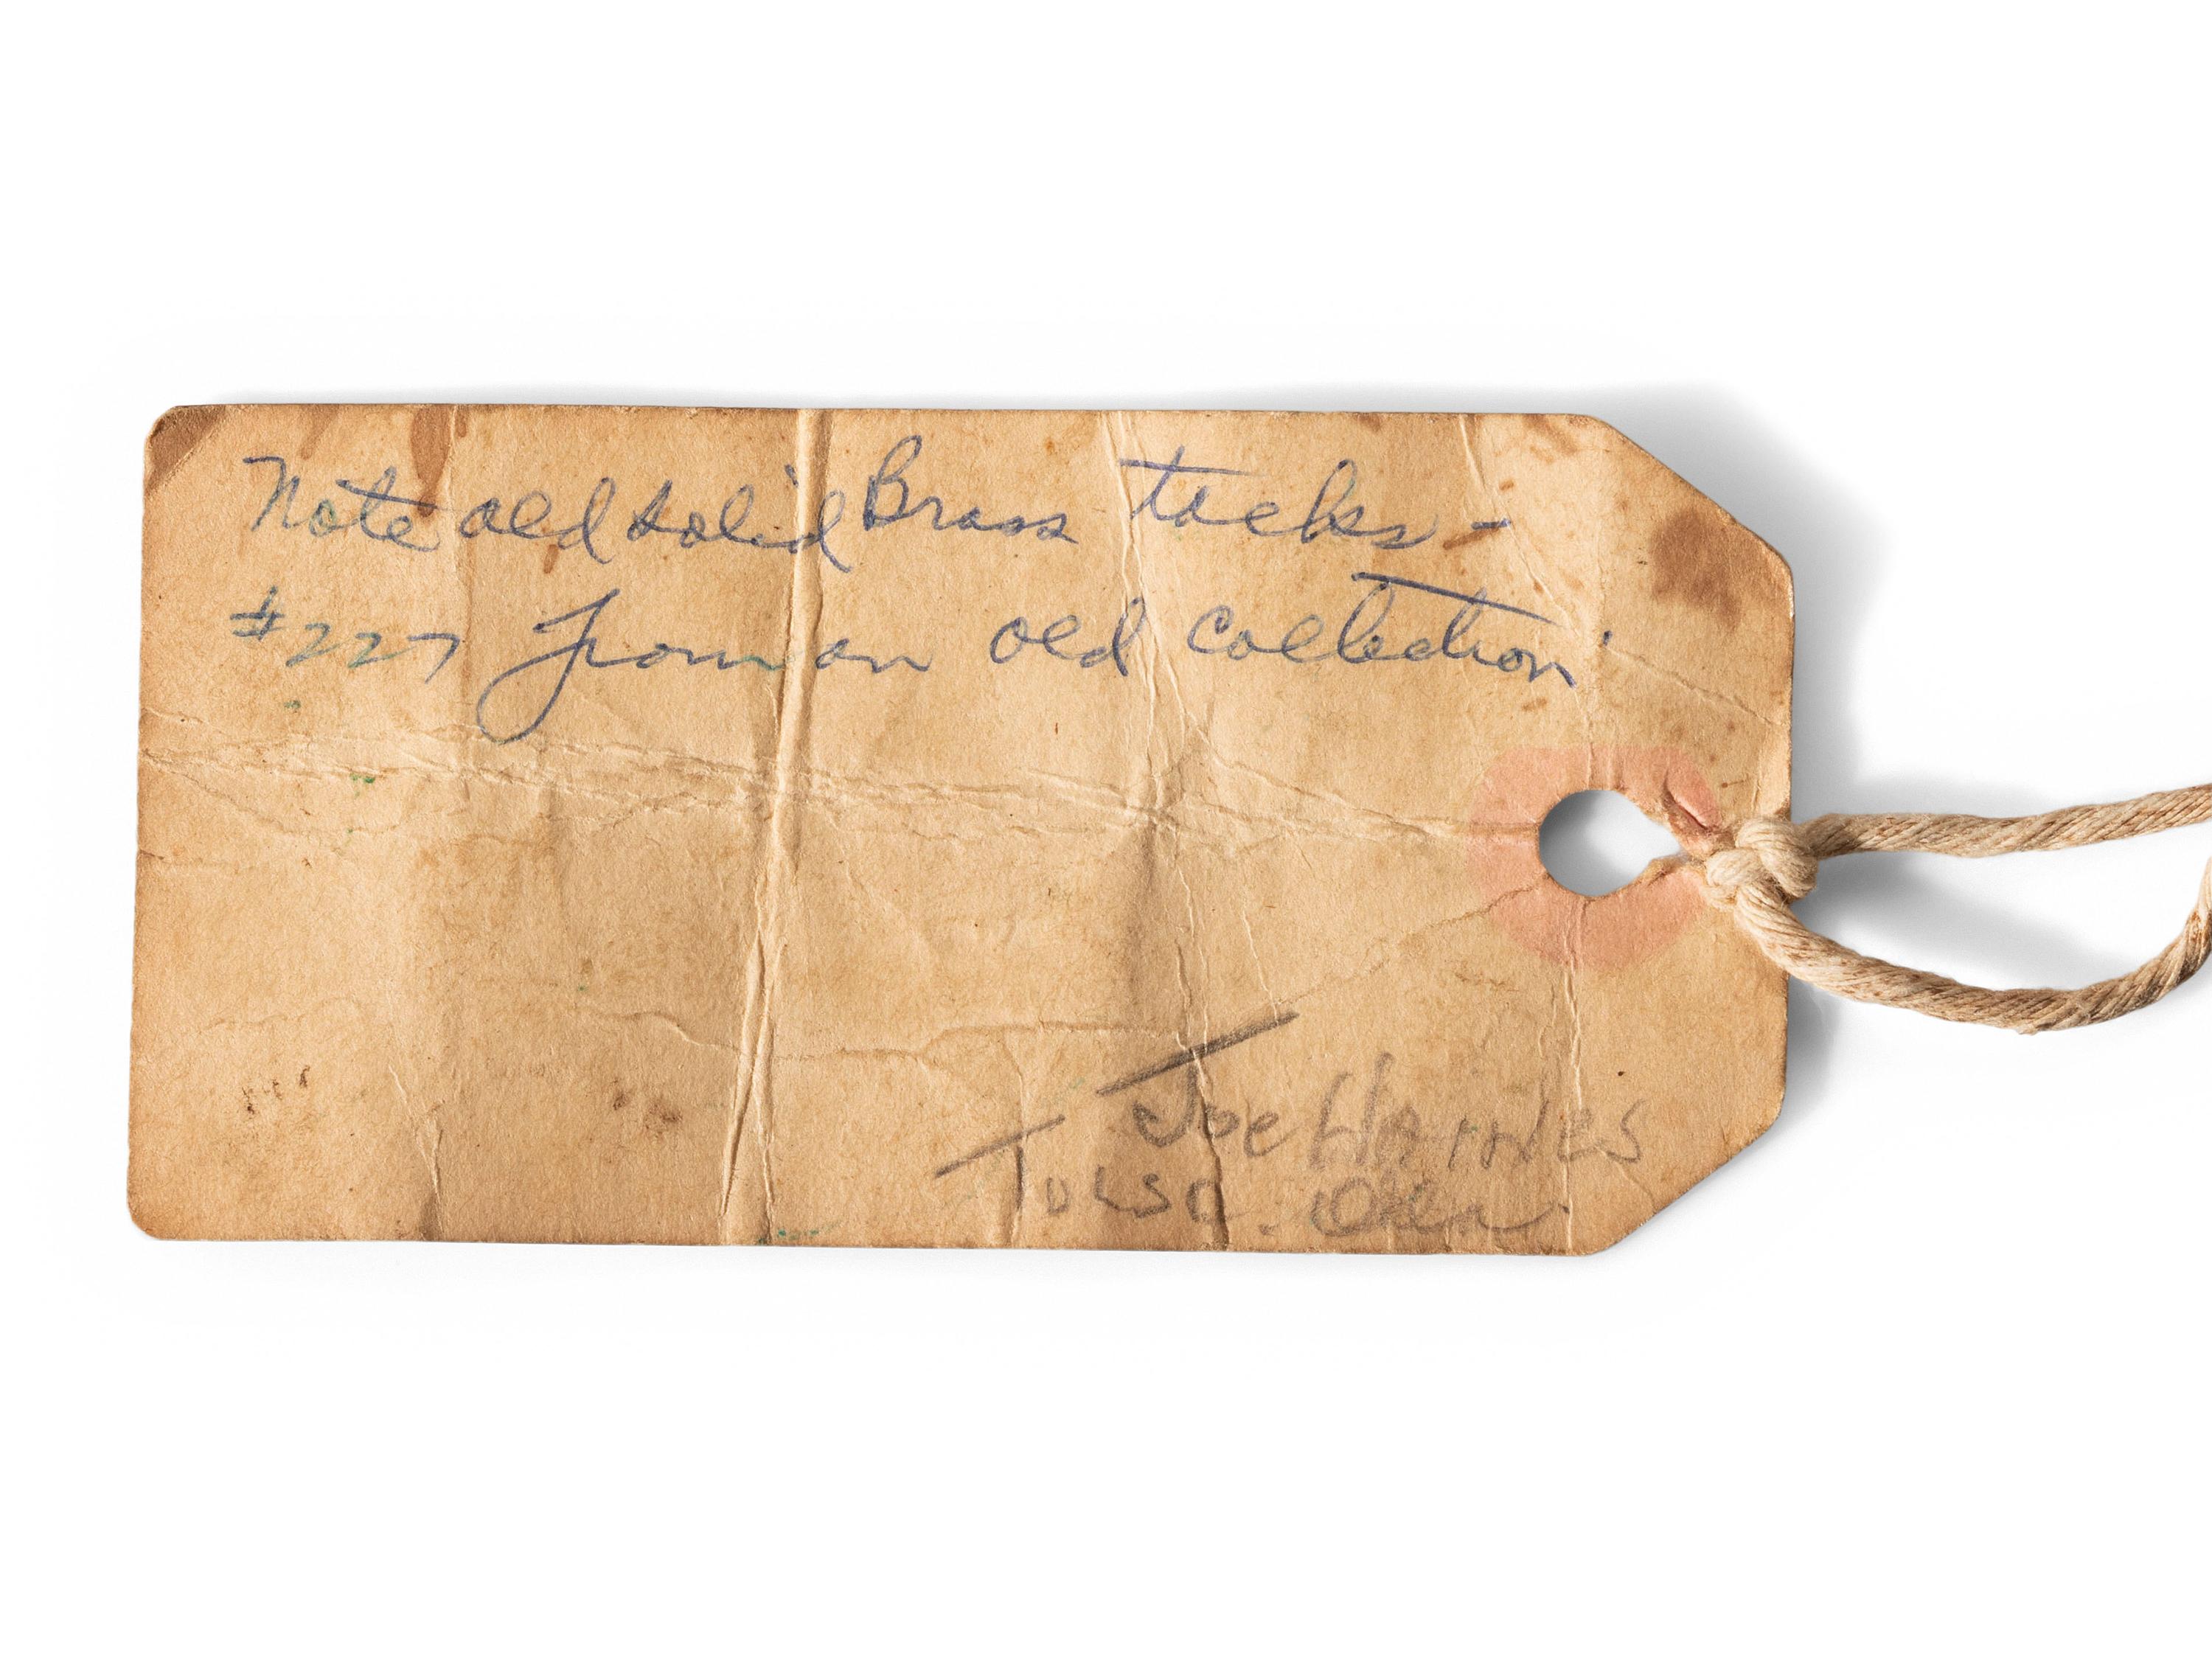 Note old solid Brass tacks -
#227 From an old collection
Joe HAINES
TULSA. Okla.